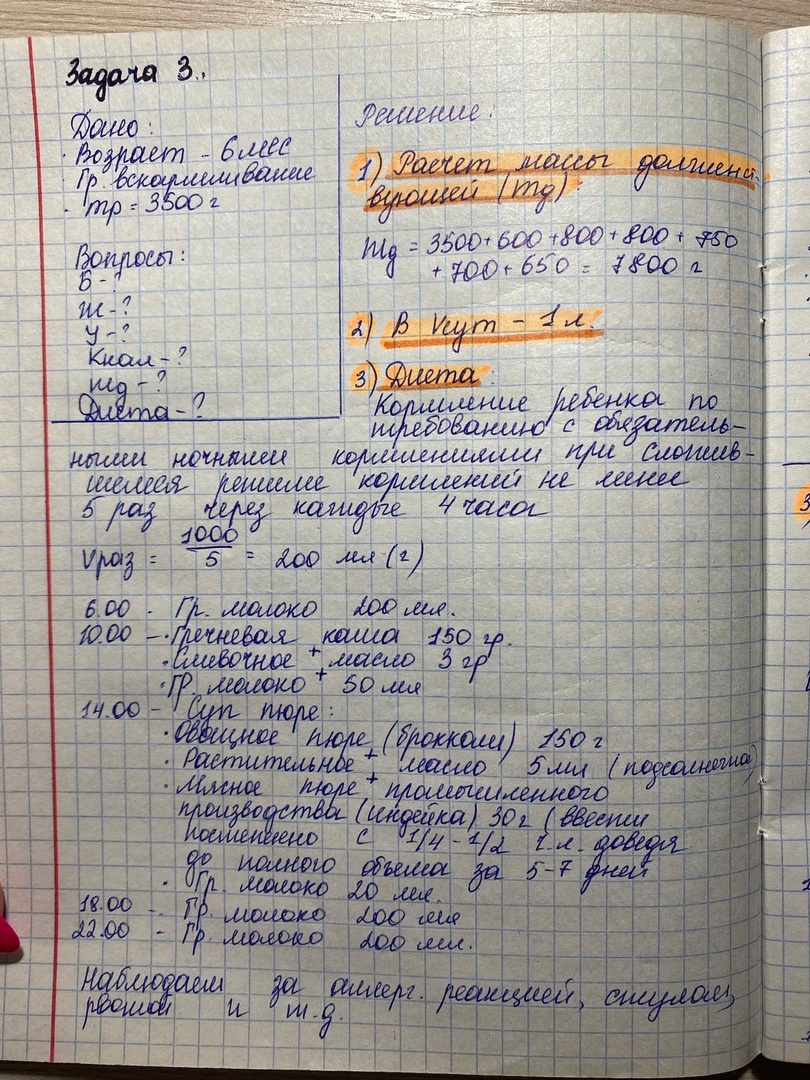 Задача 3.
Дано:
· Возраст - 6 мес
· Гр. вскармливание
· mр = 3500 г
Вопросы:
Б - ?
Ж - ?
У - ?
Ккал - ?
mд - ?
Диета - ?
Решение:
1) Расчет массы долженст-
вующей (mд)
mд = 3500 + 600 + 800 + 800 + 750
+ 700 + 650 = 7800 г
2) В Vсут - 1 л.
3) Диета:
Кормление ребенка по
требованию с обязатель-
ными ночными кормлениями при сложив-
шемся режиме кормлений не менее
5 раз через каждые 4 часа
Vраз = 1000/5 = 200 мл (г)
6.00 - Гр. молоко 200 мл.
10.00 - · Гречневая каша 150 гр.
+
· Сливочное масло 3 гр
+
· Гр. молоко 50 мл
14.00 - Суп пюре:
· Овощное пюре (брокколи) 150 г
+
· Растительное масло 5 мл (подсолнечное)
+
· Мясное пюре промышленного
производства (индейка) 30 г (ввести
постепенно с 1/4 - 1/2 ч.л. доведя
до полного объема за 5-7 дней
· Гр. молоко 20 мл.
18.00 - Гр. молоко 200 мл
22.00 - Гр. молоко 200 мл.
Наблюдаем за аллерг. реакцией, стулом,
рвотой и т.д.